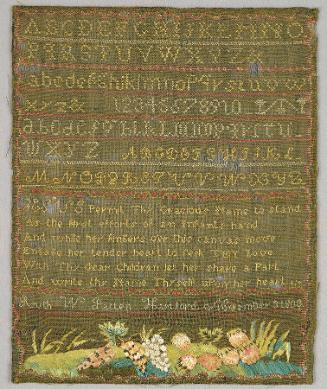 ABCDEFGHIJKLMNO
PQRSTUVWXYZ
abcdefghiklmnopqrstuvw
xyz& 12345678910
abcdefghiklmnopqrstu
wxyz ABCDEFGHIKL
MNOPQRSTUVWXYZ
JESUS Permit Thy Gracious Name to stand
As the first efforts of an infants hand
And while her fingers over this canvas move
Engage her tender heart to seek Thy Love
With Thy dear Children let her share a Part
And write thy Name Thyself upon her heart
Ruth W Patten Hartford November